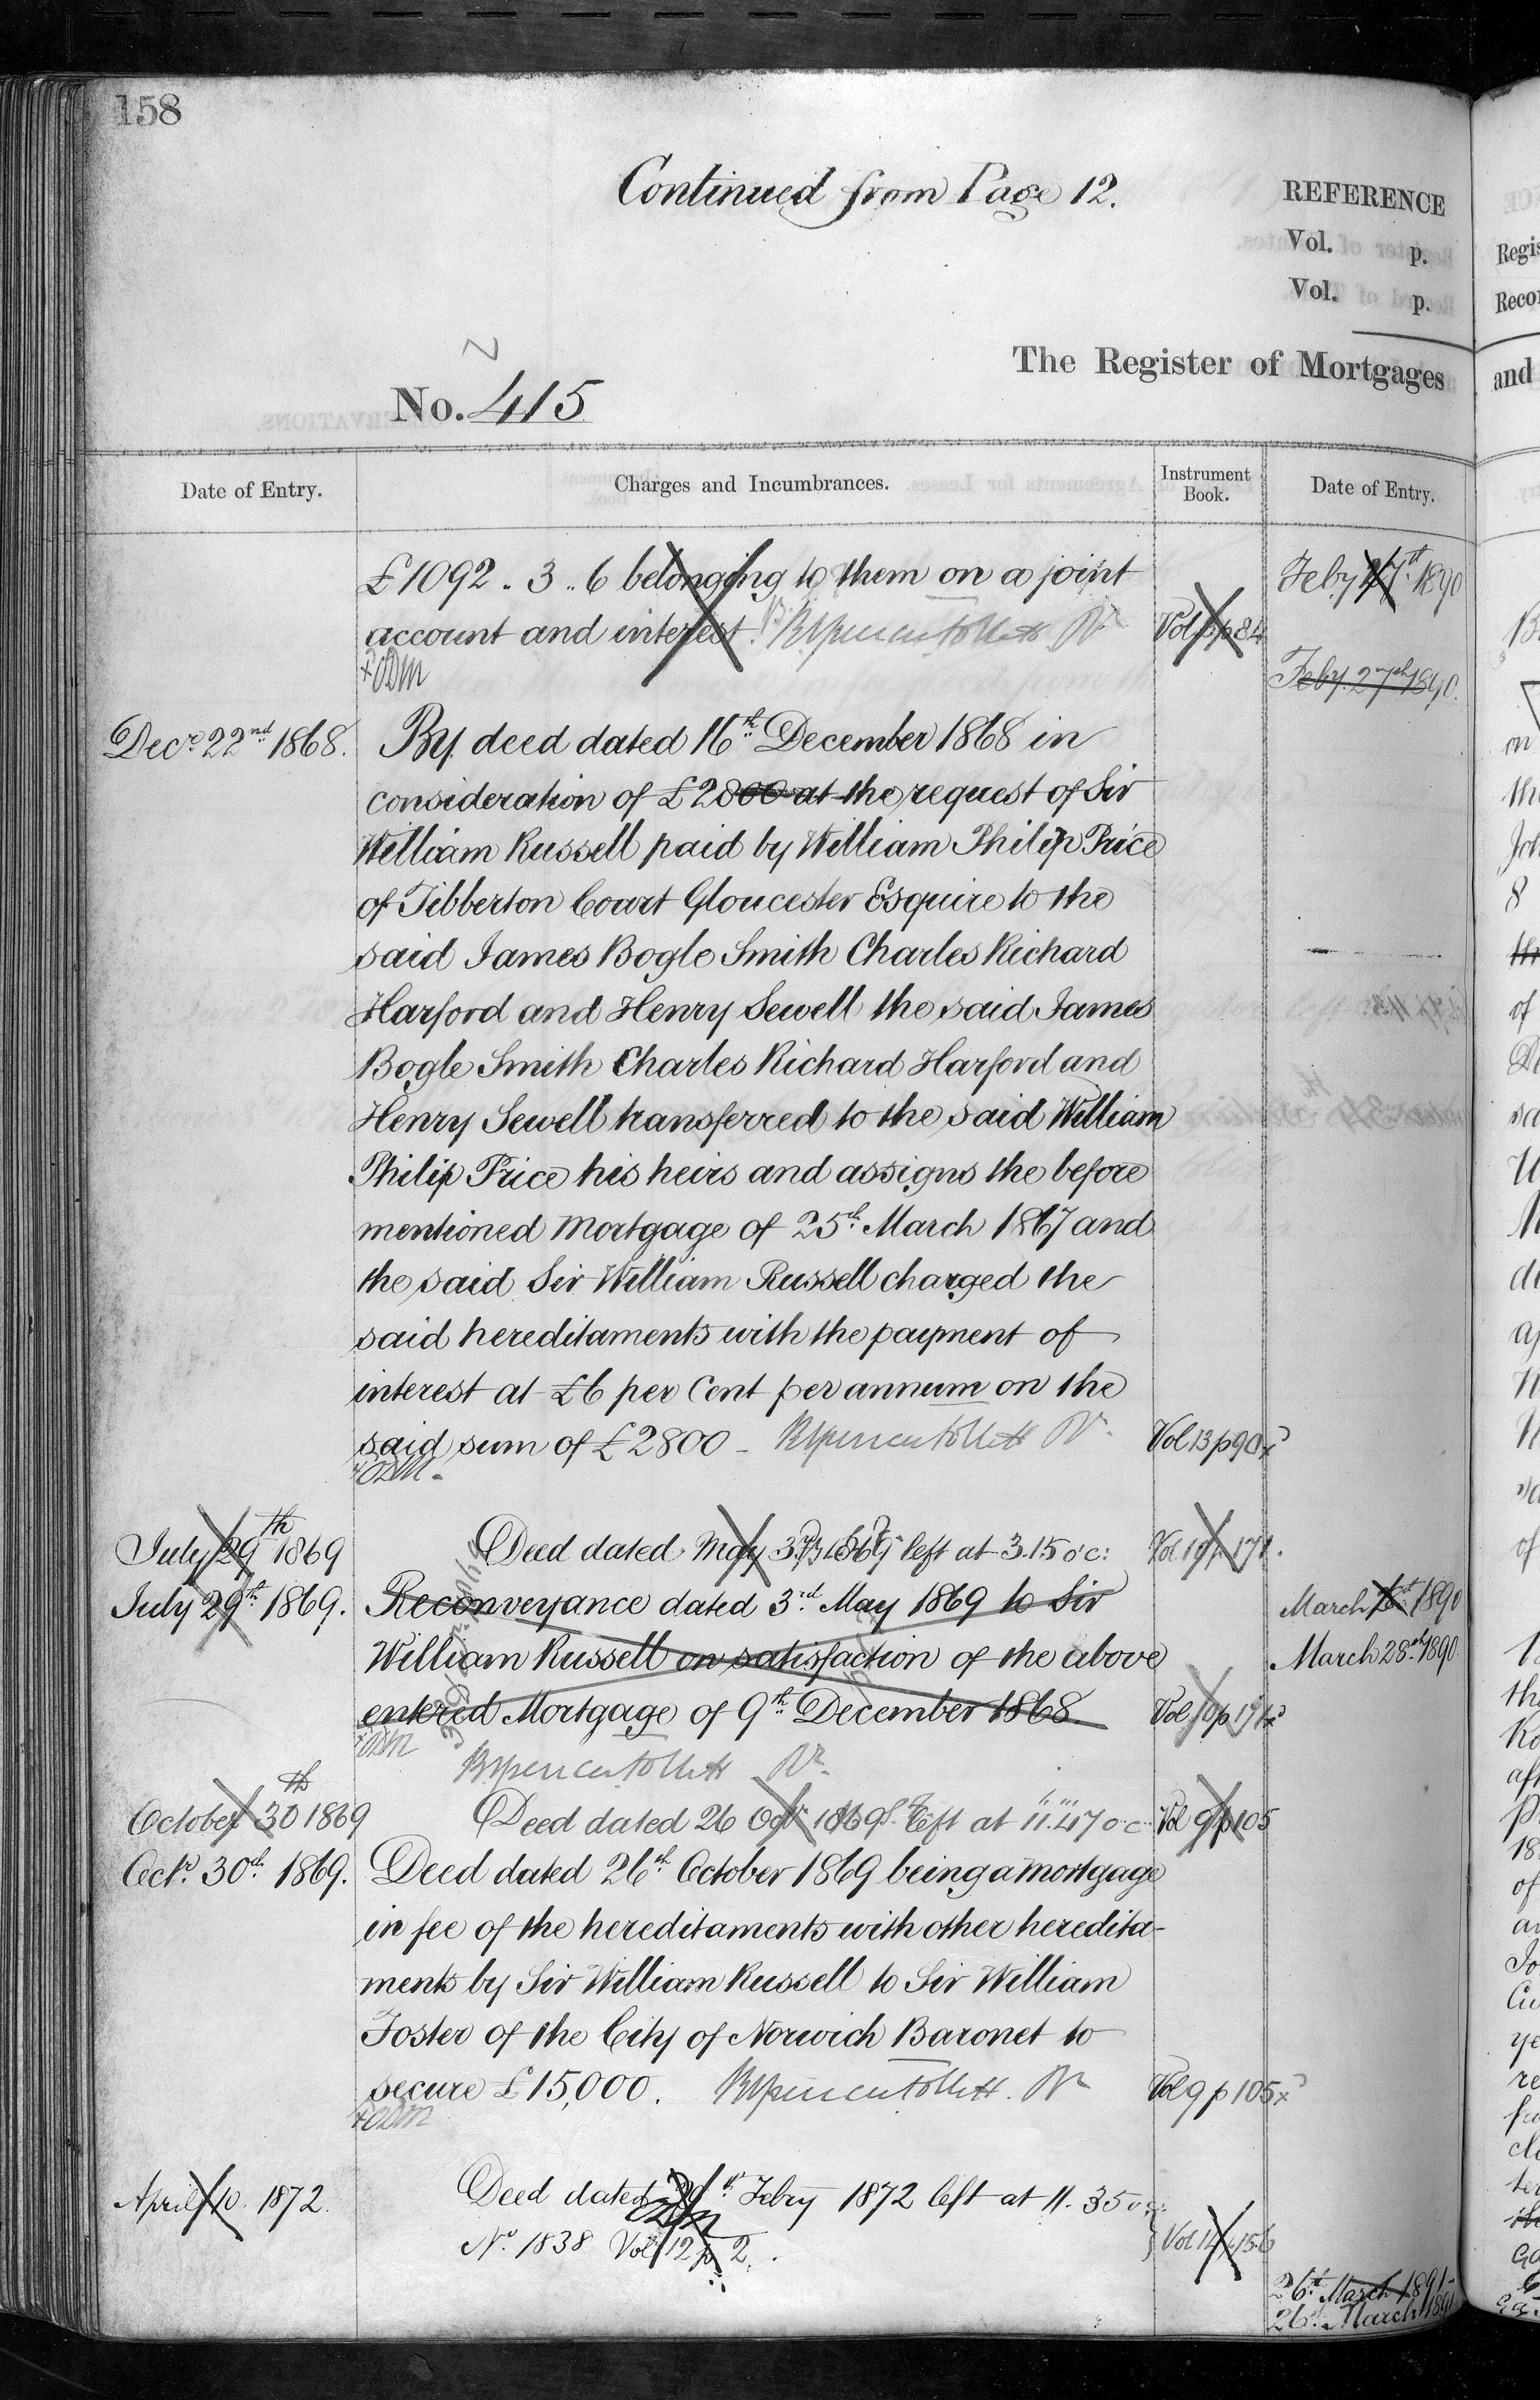 158
Continued from Page 12.
REFERENCE
Vol. p.
Vol. p.
The Register of Mortgages
No. 415
Date of Entry.
Charges and Incumbrances.
Instrument
Book.
Date of Entry.
£1092.3..6 belonging to them on a joint
account and interest.
Feby 1890
Feby. 27th 1890.
Decr. 22nd 1868.
By deed dated 16th December 1868 in
consideration of £2800 at the request of Sir
William Russell paid by William Philip Price
of Tibberton Court Gloucester Esquire to the
said James Bogle Smith Charles Richard
Harford and Henry Sewell the said James
Bogle Smith Charles Richard Harford and
Henry Sewell transferred to the said William
Philip Price his heirs and assigns the before
mentioned Mortgage of 25th March 1867 and
the said Sir William Russell charged the
said hereditaments with the payment of
interest at £6 per Cent per annum on the
said sum of £2800
Vol 13 p 90
July 29th 1869
Deed dated May 3rd 1869 left at 3.15 o'c:
July 29th 1869.
Reconveyance dated 3rd May 1869 to Sir
William Russell on satisfaction of the above
entered Mortgage of 9th December 1868.
March 1890
March 28th 1890
October 30th 1869
Deed dated 26 Octr 1869 left at 11.47 o c
Vol 9 p 105
Octr. 30th 1869.
Deed dated 26th October 1869 being a mortgage
in fee of the hereditaments with other heredita-
ments by Sir William Russell to Sir William
Foster of the City of Norwich Baronet to
secure £15,000.
Vol 9 p 105
April 10. 1872.
Deed dated Febry 1872 left at 11.35 o c:
No. 1838 Vol 12 p 2.
26th March 1891
26th March 1891